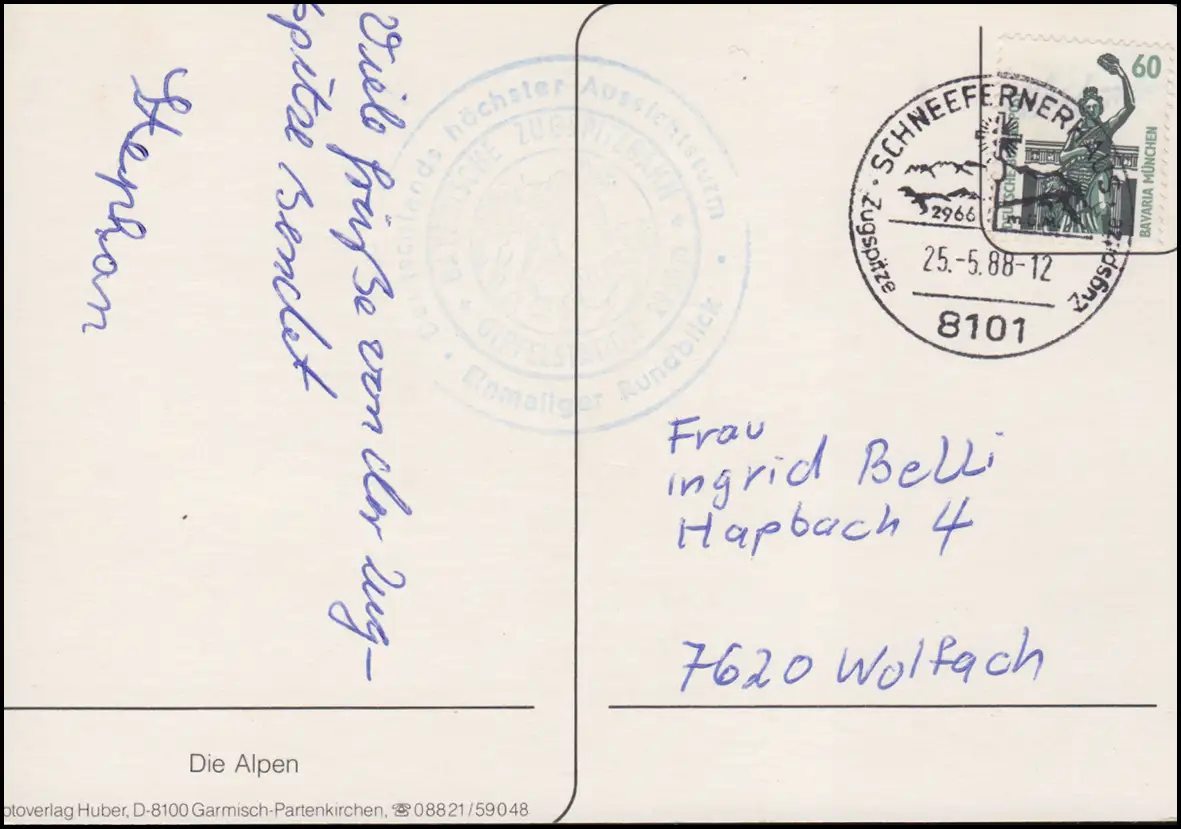 Viele Grüße von der Zug-
spitze sendet
Stephan
Deutschlands höchster Aussichtsturm
Einmaliger Rundblick
BAYERISCHE ZUGSPITZBAHN
GIPFELSTATION
60
DEUTSCHE
BAVARIA MÜNCHEN
SCHNEEFERNERHAUS
2966
Zugspitze
Zugspitze
25.-5.88-12
8101
Frau
Ingrid Belli
Hapbach 4
7620 Wolfach
Die Alpen
otoverlag Huber, D-8100 Garmisch-Partenkirchen, ☏ 08821/59048